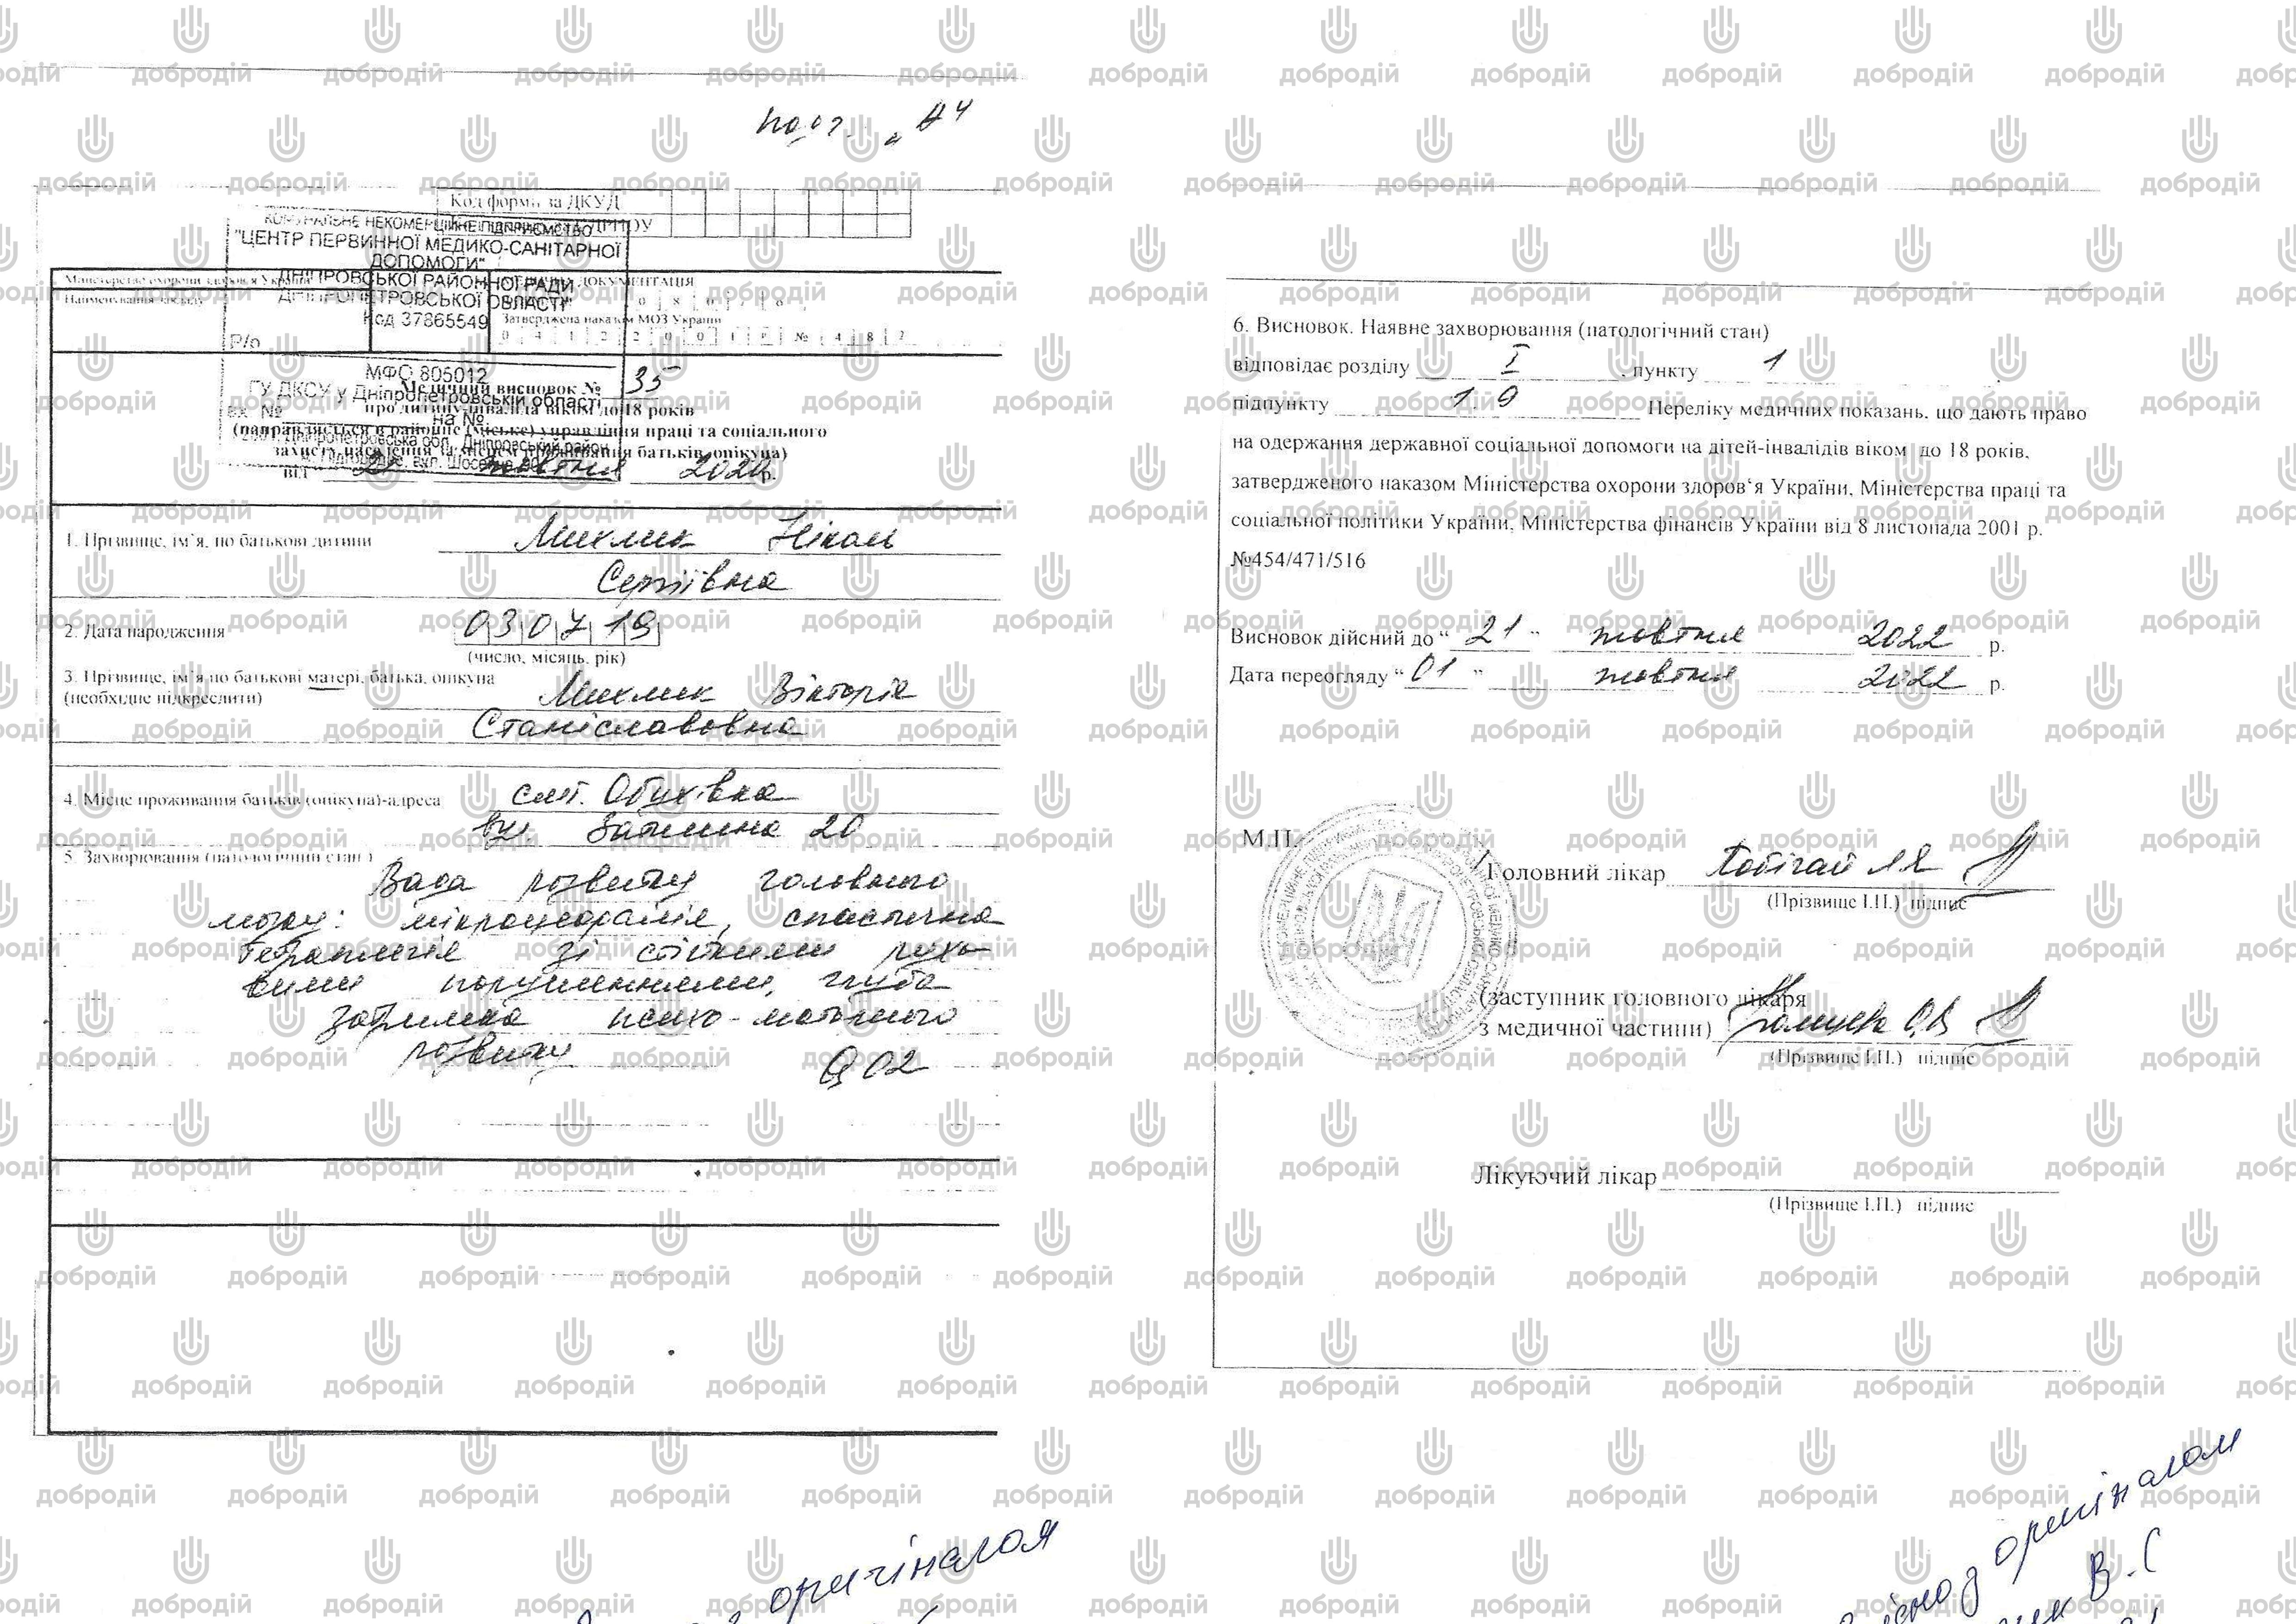 Код форми за ДКУД
КОМУНАЛЬНЕ НЕКОМЕРЦІЙНЕ ПІДПРИЄМСТВО
"ЦЕНТР ПЕРВИННОЇ МЕДИКО-САНІТАРНОЇ
ДОПОМОГИ"
ДНІПРОВСЬКОЇ РАЙОННОЇ РАДИ
ДНІПРОПЕТРОВСЬКОЇ ОБЛАСТІ"
Код 37865549
Р/р
МФО 805012
ГУ ДКСУ у Дніпропетровській області
вх. № на №
Міністерство охорони здоров'я України
Найменування закладу
ДОКУМЕНТАЦІЯ
Затверджена наказом МОЗ України
0 4 1 2 2 0 0 1 р № 4 8 2
Медичний висновок № 35
про дитину-інваліда віком до 18 років
(направляється в районне (міське) управління праці та соціального
захисту населення за місцем проживання батьків, опікуна)
від 21 жовтня 2020 р.
1. Прізвище, ім'я, по батькові дитини Миклик Ніколь
Сергіївна
2. Дата народження 03 07 19
(число, місяць, рік)
3. Прізвище, ім'я по батькові матері, батька, опікуна
(необхідне підкреслити) Миклик Вікторія
Станіславовна
4. Місце проживання батьків (опікуна)-адреса смт. Обухівка
вул. 20
5. Захворювання (патологічний стан)
Вада розвитку головного
мозку: мікроцефалія, спастична
тетраплегія зі стійкими рухо-
вими порушеннями, груба
затримка психо-моторного
розвитку Q02
6. Висновок. Наявне захворювання (патологічний стан)
відповідає розділу І, пункту 1
підпункту 1.9 Переліку медичних показань, що дають право
на одержання державної соціальної допомоги на дітей-інвалідів віком до 18 років,
затвердженого наказом Міністерства охорони здоров'я України, Міністерства праці та
соціальної політики України, Міністерства фінансів України від 8 листопада 2001 р.
№454/471/516
Висновок дійсний до "21" жовтня 2022 р.
Дата переогляду "01" жовтня 2022 р.
М.П.
Головний лікар
(Прізвище І.П.) підпис
(заступник головного лікаря
з медичної частини)
(Прізвище І.П.) підпис
Лікуючий лікар
(Прізвище І.П.) підпис
оригіналом
оригіналом
В.С
добродій